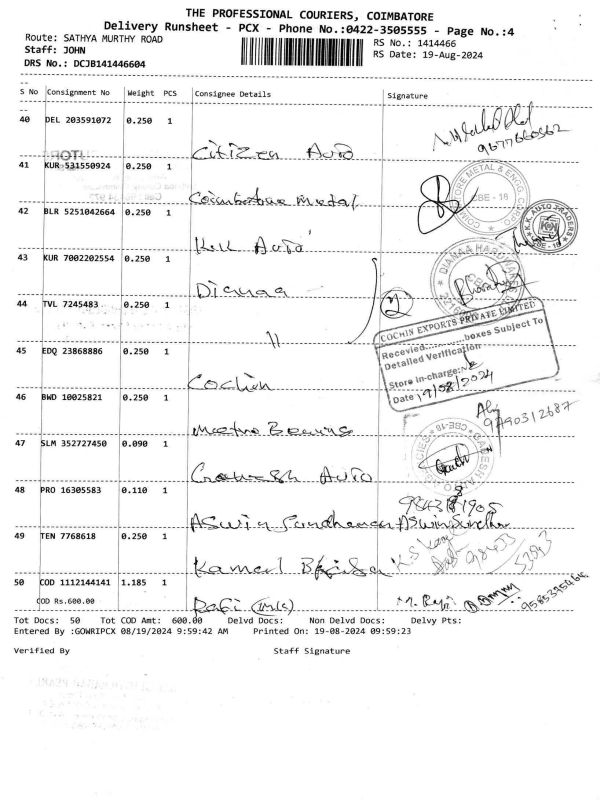 THE PROFESSIONAL COURIERS, COIMBATORE
Delivery Runsheet - PCX - Phone No.:0422-3505555 - Page No.:4
Route: SATHYA MURTHY ROAD
RS No.: 1414466
Staff: JOHN
RS Date: 19-Aug-2024
DRS No.: DCJB141446604
S No Consignment No Weight PCS Consignee Details Signature
40 DEL 203591072 0.250 1
Citizen Auto 9677660562
41 KUR 531550924 0.250 1
Coimbatore Metal
COIMBATORE METAL & ENGG. CORPO
CBE - 18
42 BLR 5251042664 0.250 1
K.K Auto
K.K. AUTO TRADERS
CBE - 18
43 KUR 7002202554 0.250 1
Dianaa
DIANAA HARDWARE
Bharathi
44 TVL 7245483 0.250 1
11 2
COCHIN EXPORTS PRIVATE LIMITED
Recevied.............boxes Subject To
Detailed Verification
Store in-charge:
Date 19/08/2024
45 EDQ 23868886 0.250 1
Cochin
46 BWD 10025821 0.250 1
Metro Bearing 9790312687
47 SLM 352727450 0.090 1
Ganesh Auto
GANESH AUTO AGENCIES
CBE-18
48 PRO 16305583 0.110 1
9843181905
Aswin Sundharan Aswin Sundhar
49 TEN 7768618 0.250 1
Kamal
98433
53893
50 COD 1112144141 1.185 1
COD Rs.600.00
Rafi (M/s) M. Rafi 9585395466
Tot Docs: 50 Tot COD Amt: 600.00 Delvd Docs: Non Delvd Docs: Delvy Pts:
Entered By :GOWRIPCX 08/19/2024 9:59:42 AM Printed On: 19-08-2024 09:59:23
Verified By Staff Signature